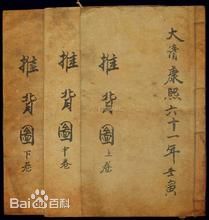 大清康熙六十一年壬寅
推背圖上卷
推背圖中卷
推背圖下卷
Bai百科